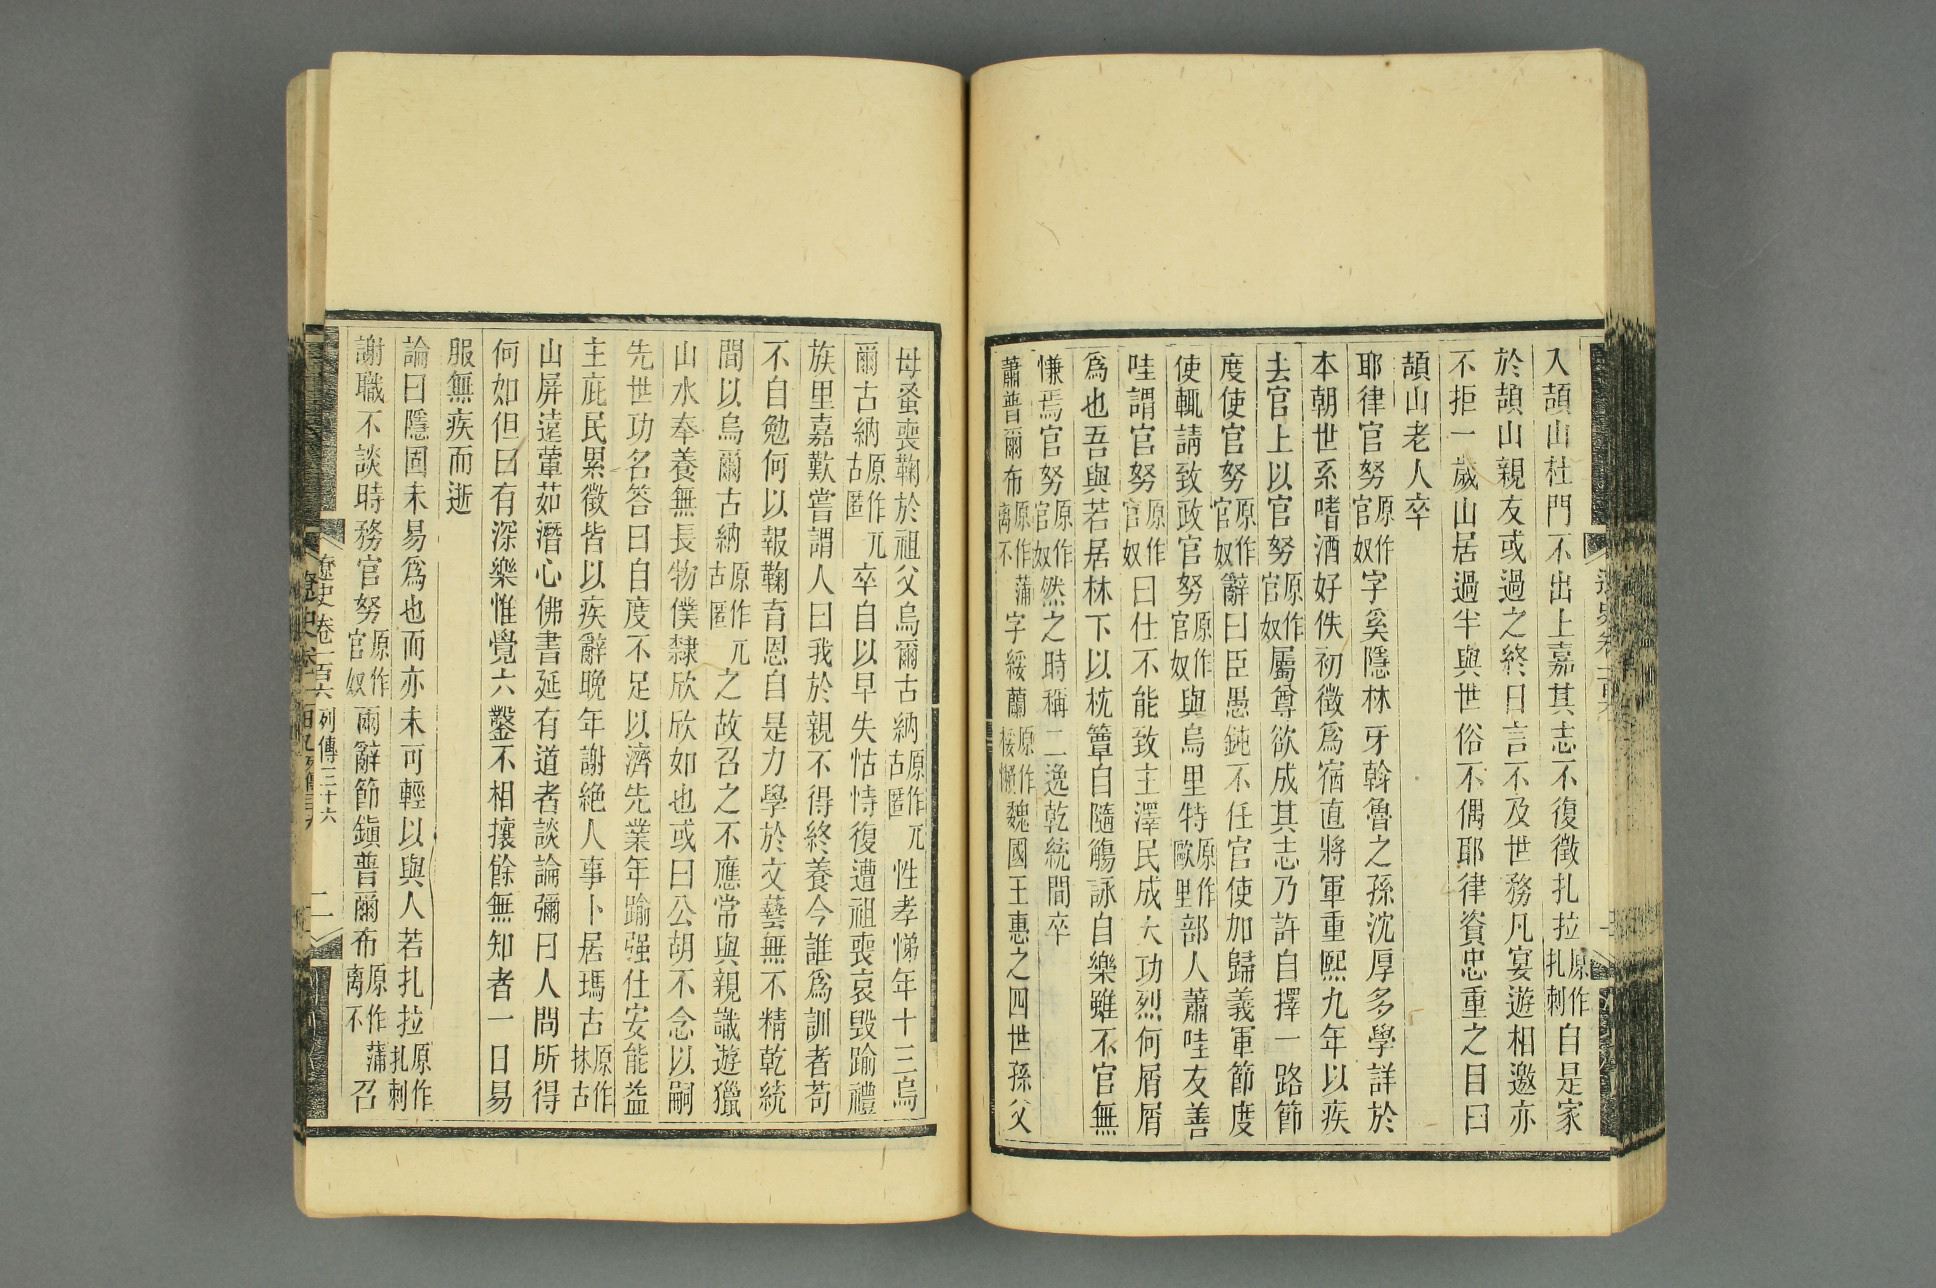 入頡山杜門不出上嘉其志不復徵扎拉原作扎剌自是家
於頡山親友或過之終日言不及世務凡宴遊相邀亦
不拒一歲山居過半與世俗不偶耶律資忠重之目曰
頡山老人卒
耶律官努原作官奴字奚隱林牙斡魯之孫沈厚多學詳於
本朝世系嗜酒好佚初徵爲宿直將軍重熙九年以疾
去官上以官努原作官奴屬尊欲成其志乃許自擇一路節
度使官努原作官奴辭曰臣愚鈍不任官使加歸義軍節度
使輒請致政官努原作官奴與烏里特原作歐里部人蕭哇友善
哇謂官努原作官奴曰仕不能致主澤民成大功烈何屑屑
爲也吾與若居林下以枕簟自隨觴詠自樂雖不官無
慊焉官努原作官奴然之時稱二逸乾統間卒
蕭普爾布原作蒲離不字綏蘭原作桵懶魏國王惠之四世孫父
母蚤喪鞠於祖父烏爾古納原作兀古匿性孝悌年十三烏
爾古納原作兀古匿卒自以早失怙恃復遭祖喪哀毀踰禮
族里嘉歎嘗謂人曰我於親不得終養今誰爲訓者苟
不自勉何以報鞠育恩自是力學於文藝無不精乾統
間以烏爾古納原作兀古匿之故召之不應常與親識遊獵
山水奉養無長物僕隸欣欣如也或曰公胡不念以嗣
先世功名答曰自度不足以濟先業年踰强仕安能益
主庇民累徵皆以疾辭晚年謝絶人事卜居瑪古原作抹古
山屏遠葷茹潛心佛書延有道者談論彌日人問所得
何如但曰有深樂惟覺六鑿不相攘餘無知者一日易
服無疾而逝
論曰隱固未易爲也而亦未可輕以與人若扎拉原作扎剌
謝職不談時務官努原作官奴兩辭節鎮普爾布原作蒲離不召
遼史卷一百六 列傳三十六 二